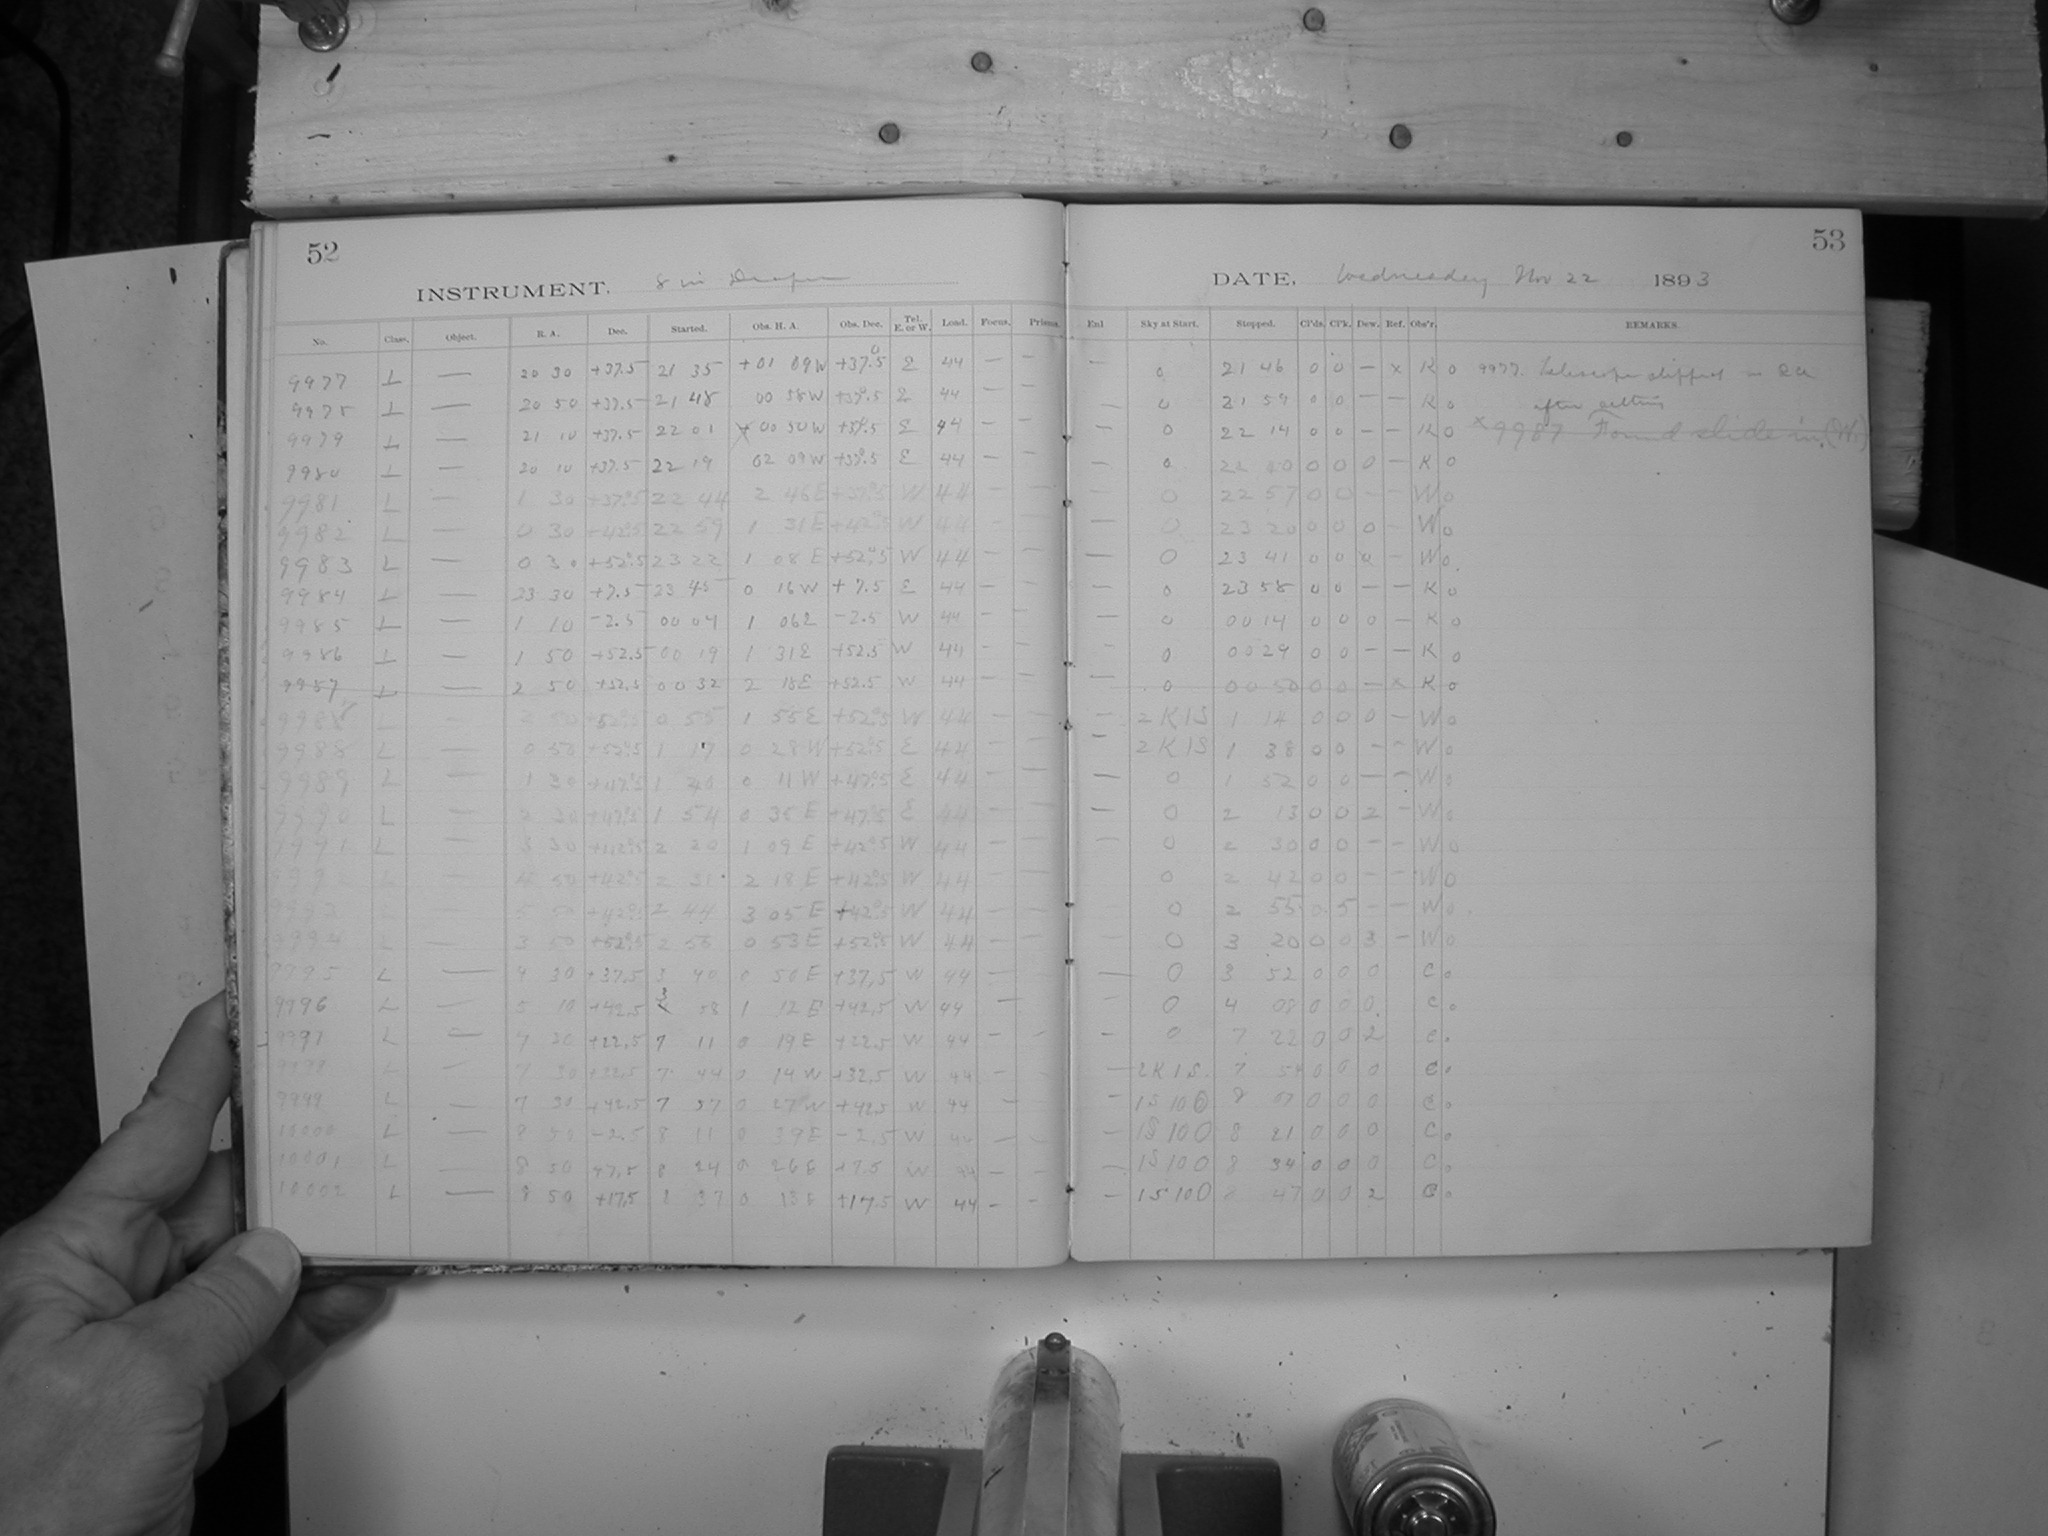 52
53
INSTRUMENT. 8 in Draper
DATE. Wednesday Nov 22 1893
No. Class. Object. R. A. Dec. Started. Obs. H. A. Obs. Dec. Tel. E. or W. Load. Focus. Prisms. Enl Sky at Start. Stopped. Cl'ds. Cl'k. Dew. Ref. Obs'r. REMARKS.
9977 L — 20 30 +37.5 21 35 +01 09W +37.5 E 44 — — — 0 21 46 0 0 — x K 0 9977. Telescope slipped in RA
9978 L — 20 50 +37.5 21 48 00 58W +37.5 E 44 — — — 0 21 59 0 0 — — K 0 after setting
9979 L — 21 10 +37.5 22 01 00 50W +37.5 E 44 — — — 0 22 14 0 0 — — K 0 x 9987 Found slide in. (W.)
9980 L — 20 10 +37.5 22 19 02 09W +37.5 E 44 — — — 0 22 40 0 0 0 — K 0
9981 L — 1 30 +37.5 22 44 2 46E +37.5 W 44 — — — 0 22 57 0 0 — — W 0
9982 L — 0 30 +42.5 22 59 1 31E +42.5 W 44 — — — 0 23 20 0 0 0 — W 0
9983 L — 0 30 +52.5 23 22 1 08E +52.5 W 44 — — — 0 23 41 0 0 0 — W 0
9984 L — 23 30 +7.5 23 45 0 16W +7.5 E 44 — — — 0 23 58 0 0 — — K 0
9985 L — 1 10 -2.5 00 04 1 06E -2.5 W 44 — — — 0 00 14 0 0 0 — K 0
9986 L — 1 50 +52.5 00 19 1 31E +52.5 W 44 — — — 0 00 29 0 0 — — K 0
9987 L — 2 50 +52.5 00 32 2 18E +52.5 W 44 — — — 0 00 50 0 0 — x K 0
9987 L — 2 50 +52.5 0 55 1 55E +52.5 W 44 — — — 2K1S 1 14 0 0 0 — W 0
9988 L — 0 50 +52.5 1 17 0 28W +52.5 E 44 — — — 2K1S 1 38 0 0 — — W 0
9989 L — 1 30 +47.5 1 40 0 11W +47.5 E 44 — — — 0 1 52 0 0 — — W 0
9990 L — 2 30 +47.5 1 54 0 35E +47.5 E 44 — — — 0 2 13 0 0 2 — W 0
9991 L — 3 30 +42.5 2 20 1 09E +42.5 W 44 — — — 0 2 30 0 0 — — W 0
9992 L — 4 50 +42.5 2 31 2 18E +42.5 W 44 — — 0 2 42 0 0 — — W 0
9993 — 5 50 +42.5 2 44 3 05E +42.5 W 44 — — 0 2 55 0 5 — — W 0
9994 L — 3 50 +52.5 2 56 0 53E +52.5 W 44 — — — 0 3 20 0 0 3 — W 0
9995 L — 4 30 +37.5 3 40 0 50E +37.5 W 44 — — 0 3 52 0 0 0 C 0
9996 L — 5 10 +42.5 3 58 1 12E +42.5 W 44 — — 0 4 08 0 0 0 C 0
9997 L — 7 30 +22.5 7 11 0 19E +22.5 W 44 — — — 0 7 22 0 0 2 C 0
9998 L — 7 30 +32.5 7 44 0 14W +32.5 W 44 — — — 2K1S. 7 54 0 0 0 C 0
9999 L — 7 30 +42.5 7 57 0 27W +42.5 W 44 — — 1S 10 0 8 07 0 0 0 C 0
10000 L — 8 50 -2.5 8 11 0 39E -2.5 W 44 — — — 1S 10 0 8 21 0 0 0 C 0
10001 L — 8 50 +7.5 8 24 0 26E +7.5 W 44 — — — 1S 10 0 8 34 0 0 0 C 0
10002 L — 8 50 +17.5 8 37 0 13E +17.5 W 44 — — — 1S 10 0 8 47 0 0 2 C 0